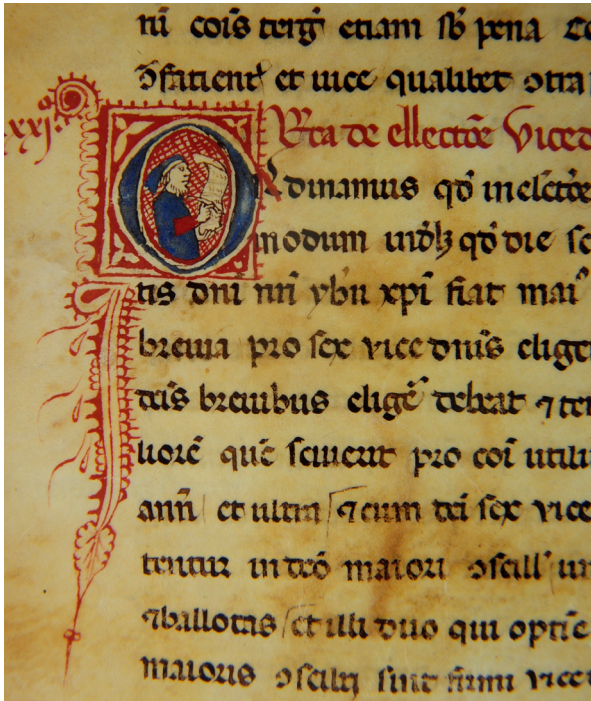 nū cois̄ terḡ etiam sb̄ pena
ꝯfatient᷑ et vice qualibet ꝯtra
xxj
Rᵃca de ellectōe vice d
Ordinamus qđ in elc̄tōe
modum vidȝ qđ die sc̄
tis dn̄i nr̄i yhu xpī fiat mai᷑
brevia pro sex vice dn̄is elige
tcis̄ brevibus elige᷑ debeat ⁊ te
liorē quē sciverīt pro coī utilit
ann̄ et ultra ⁊ cum tcī sex vice
tentur in tcō maiori ꝯscill᷑ un
⁊ ballotas et illi duo qui optīe
maioris ꝯscilij sint firmi vice